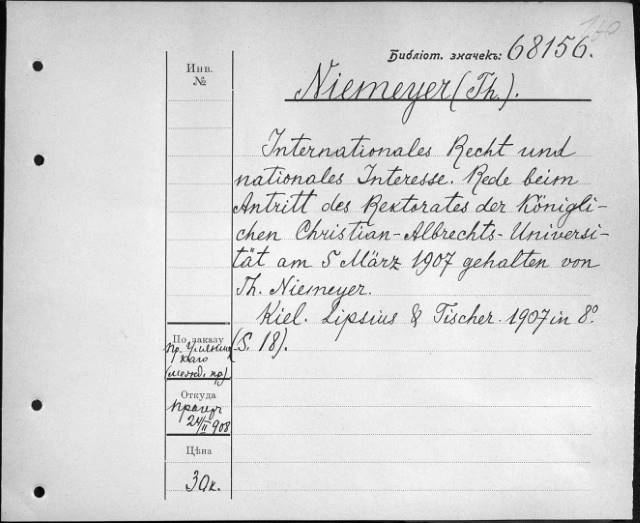 Библіот. значекъ: 68156.
Инв.
№
Niemeyer (Th.).
Internationales Recht und
nationales Interesse. Rede beim
Antritt des Rextorates der Königli-
chen Christian-Albrechts-Universi-
tät am 5 März 1907 gehalten von
Th. Niemeyer.
Kiel. Lipsius & Tischer. 1907 in 8º
(S. 18).
По заказу
пр.
(межд. пр)
Откуда
24/II 908
Цѣна
30к.